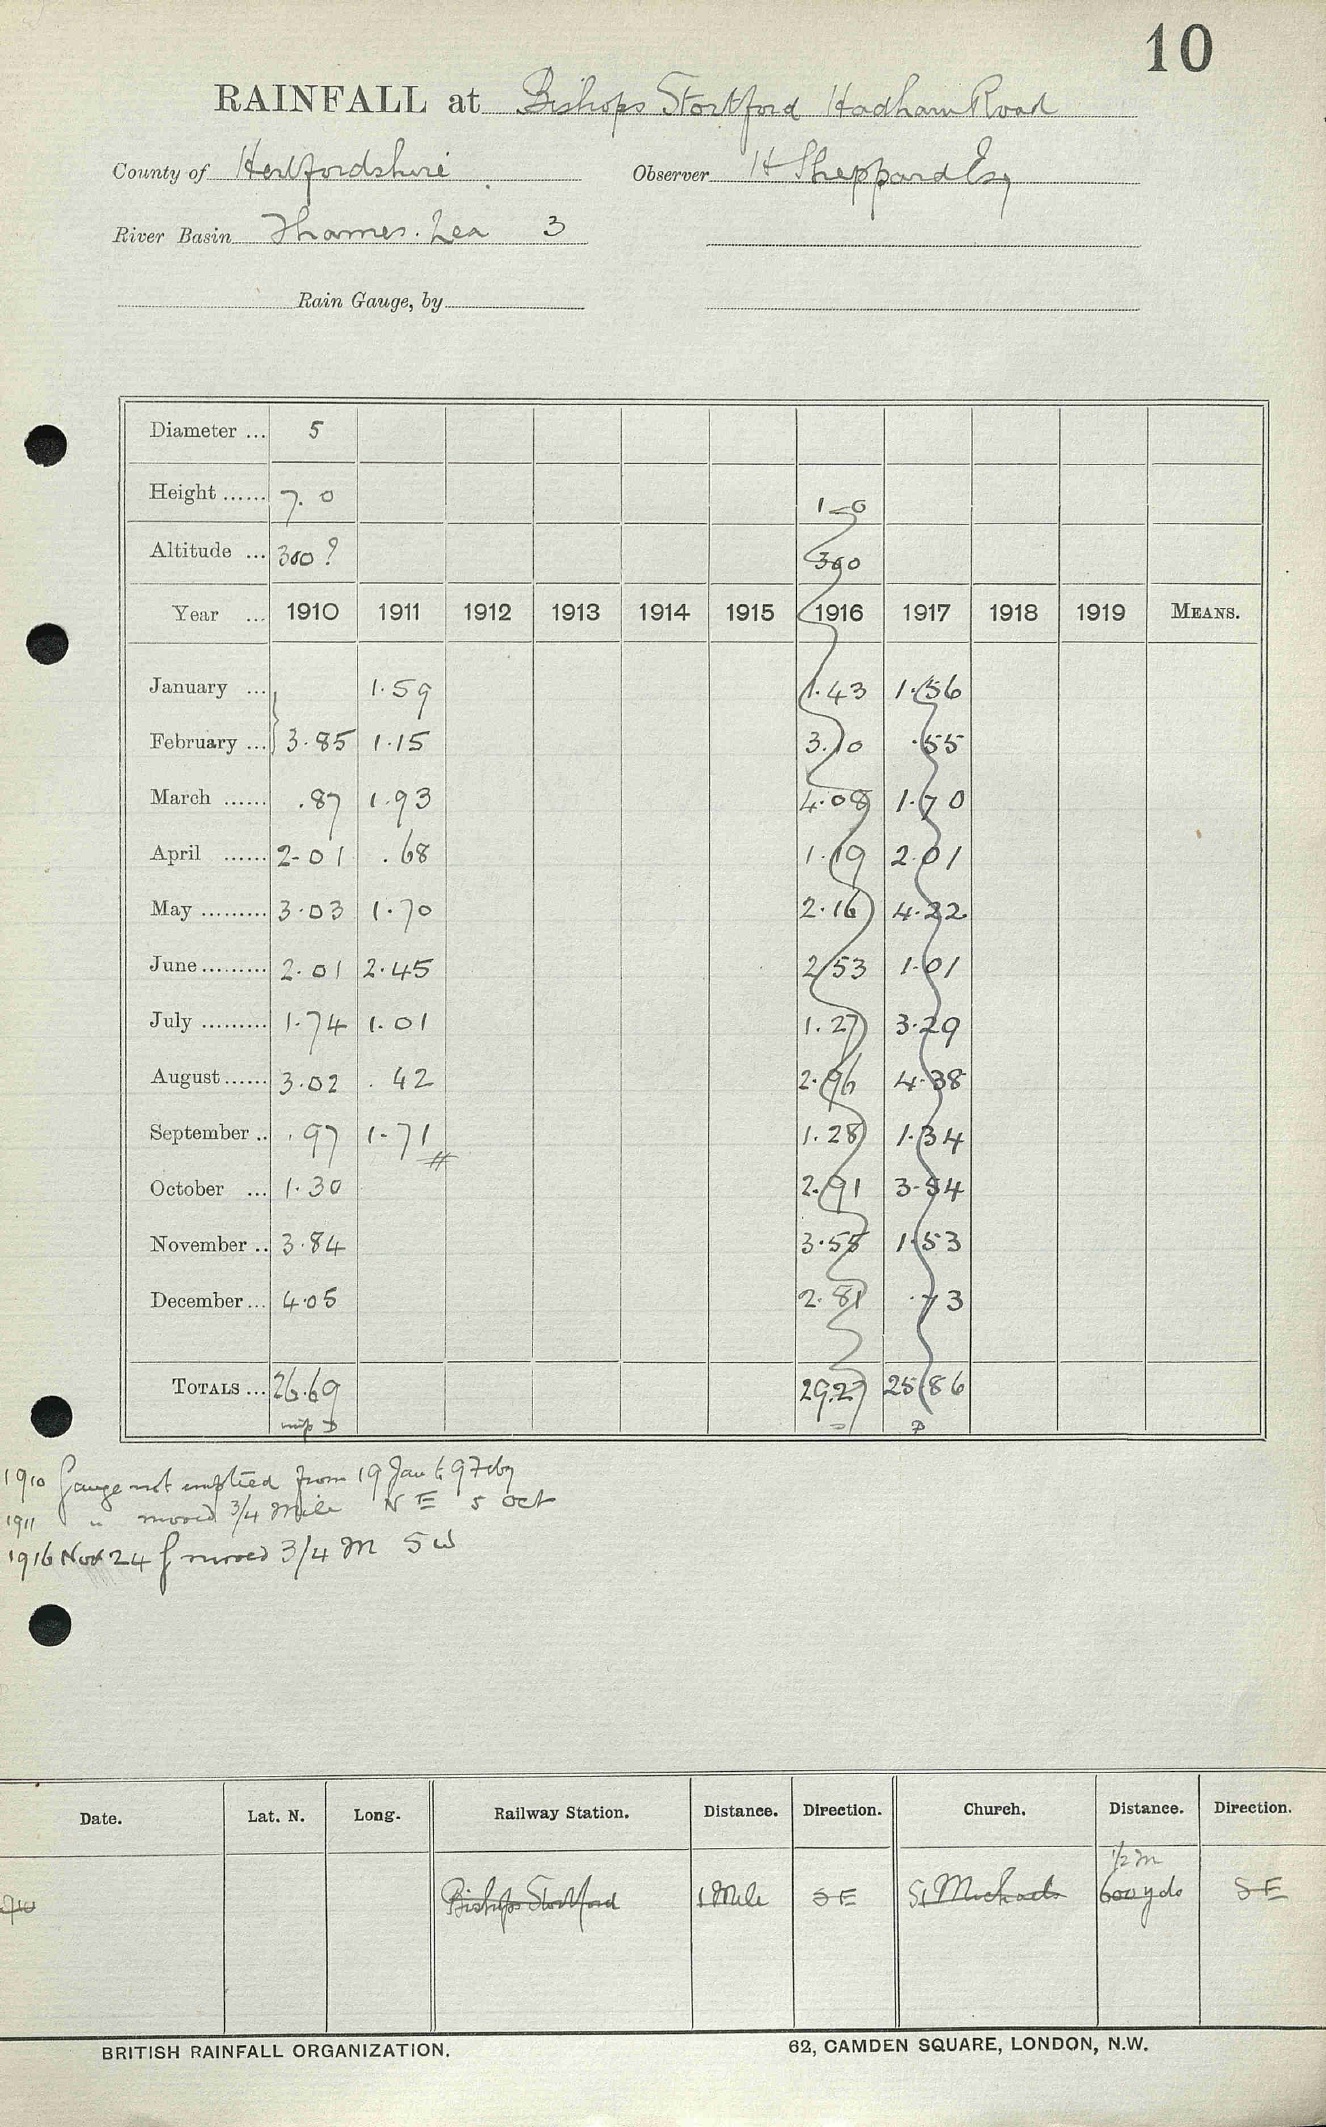 10
RAINFALL at Bishops Stortford Hadham Road
County of Hertfordshire Observer H Sheppard Esq
River Basin Thames. Lea 3
Rain Gauge, by
Diameter ... 5
Height ...... 7.0 1 0
Altitude ... 300? 300
Year ... 1910 1911 1912 1913 1914 1915 1916 1917 1918 1919 MEANS.
January ... 1.59 1.43 1.56
February ... 3.85 1.15 3.10 .55
March ...... .87 1.93 4.08 1.70
April ...... 2.01 .68 1.19 2.01
May ......... 3.03 1.70 2.16 4.22
June ......... 2.01 2.45 2.53 1.01
July ......... 1.74 1.01 1.27 3.29
August ...... 3.02 .42 2.96 4.38
September .. .97 1.71 1.28 1.34
October ... 1.30 2.91 3.54
November .. 3.84 3.55 1.53
December ... 4.05 2.81 .73
TOTALS ... 26.69 29.27 25.86
1910 Gauge not emptied from 19 Jan to 9 Feby
1911 " moved 3/4 Mile NE 5 Oct
1916 Nov 24 g moved 3/4 M SW
Date. Lat. N. Long. Railway Station. Distance. Direction. Church. Distance. Direction.
1/2 m
Bishops Stortford 1 Mile SE St Michaels 600 yds SE
BRITISH RAINFALL ORGANIZATION. 62, CAMDEN SQUARE, LONDON, N.W.